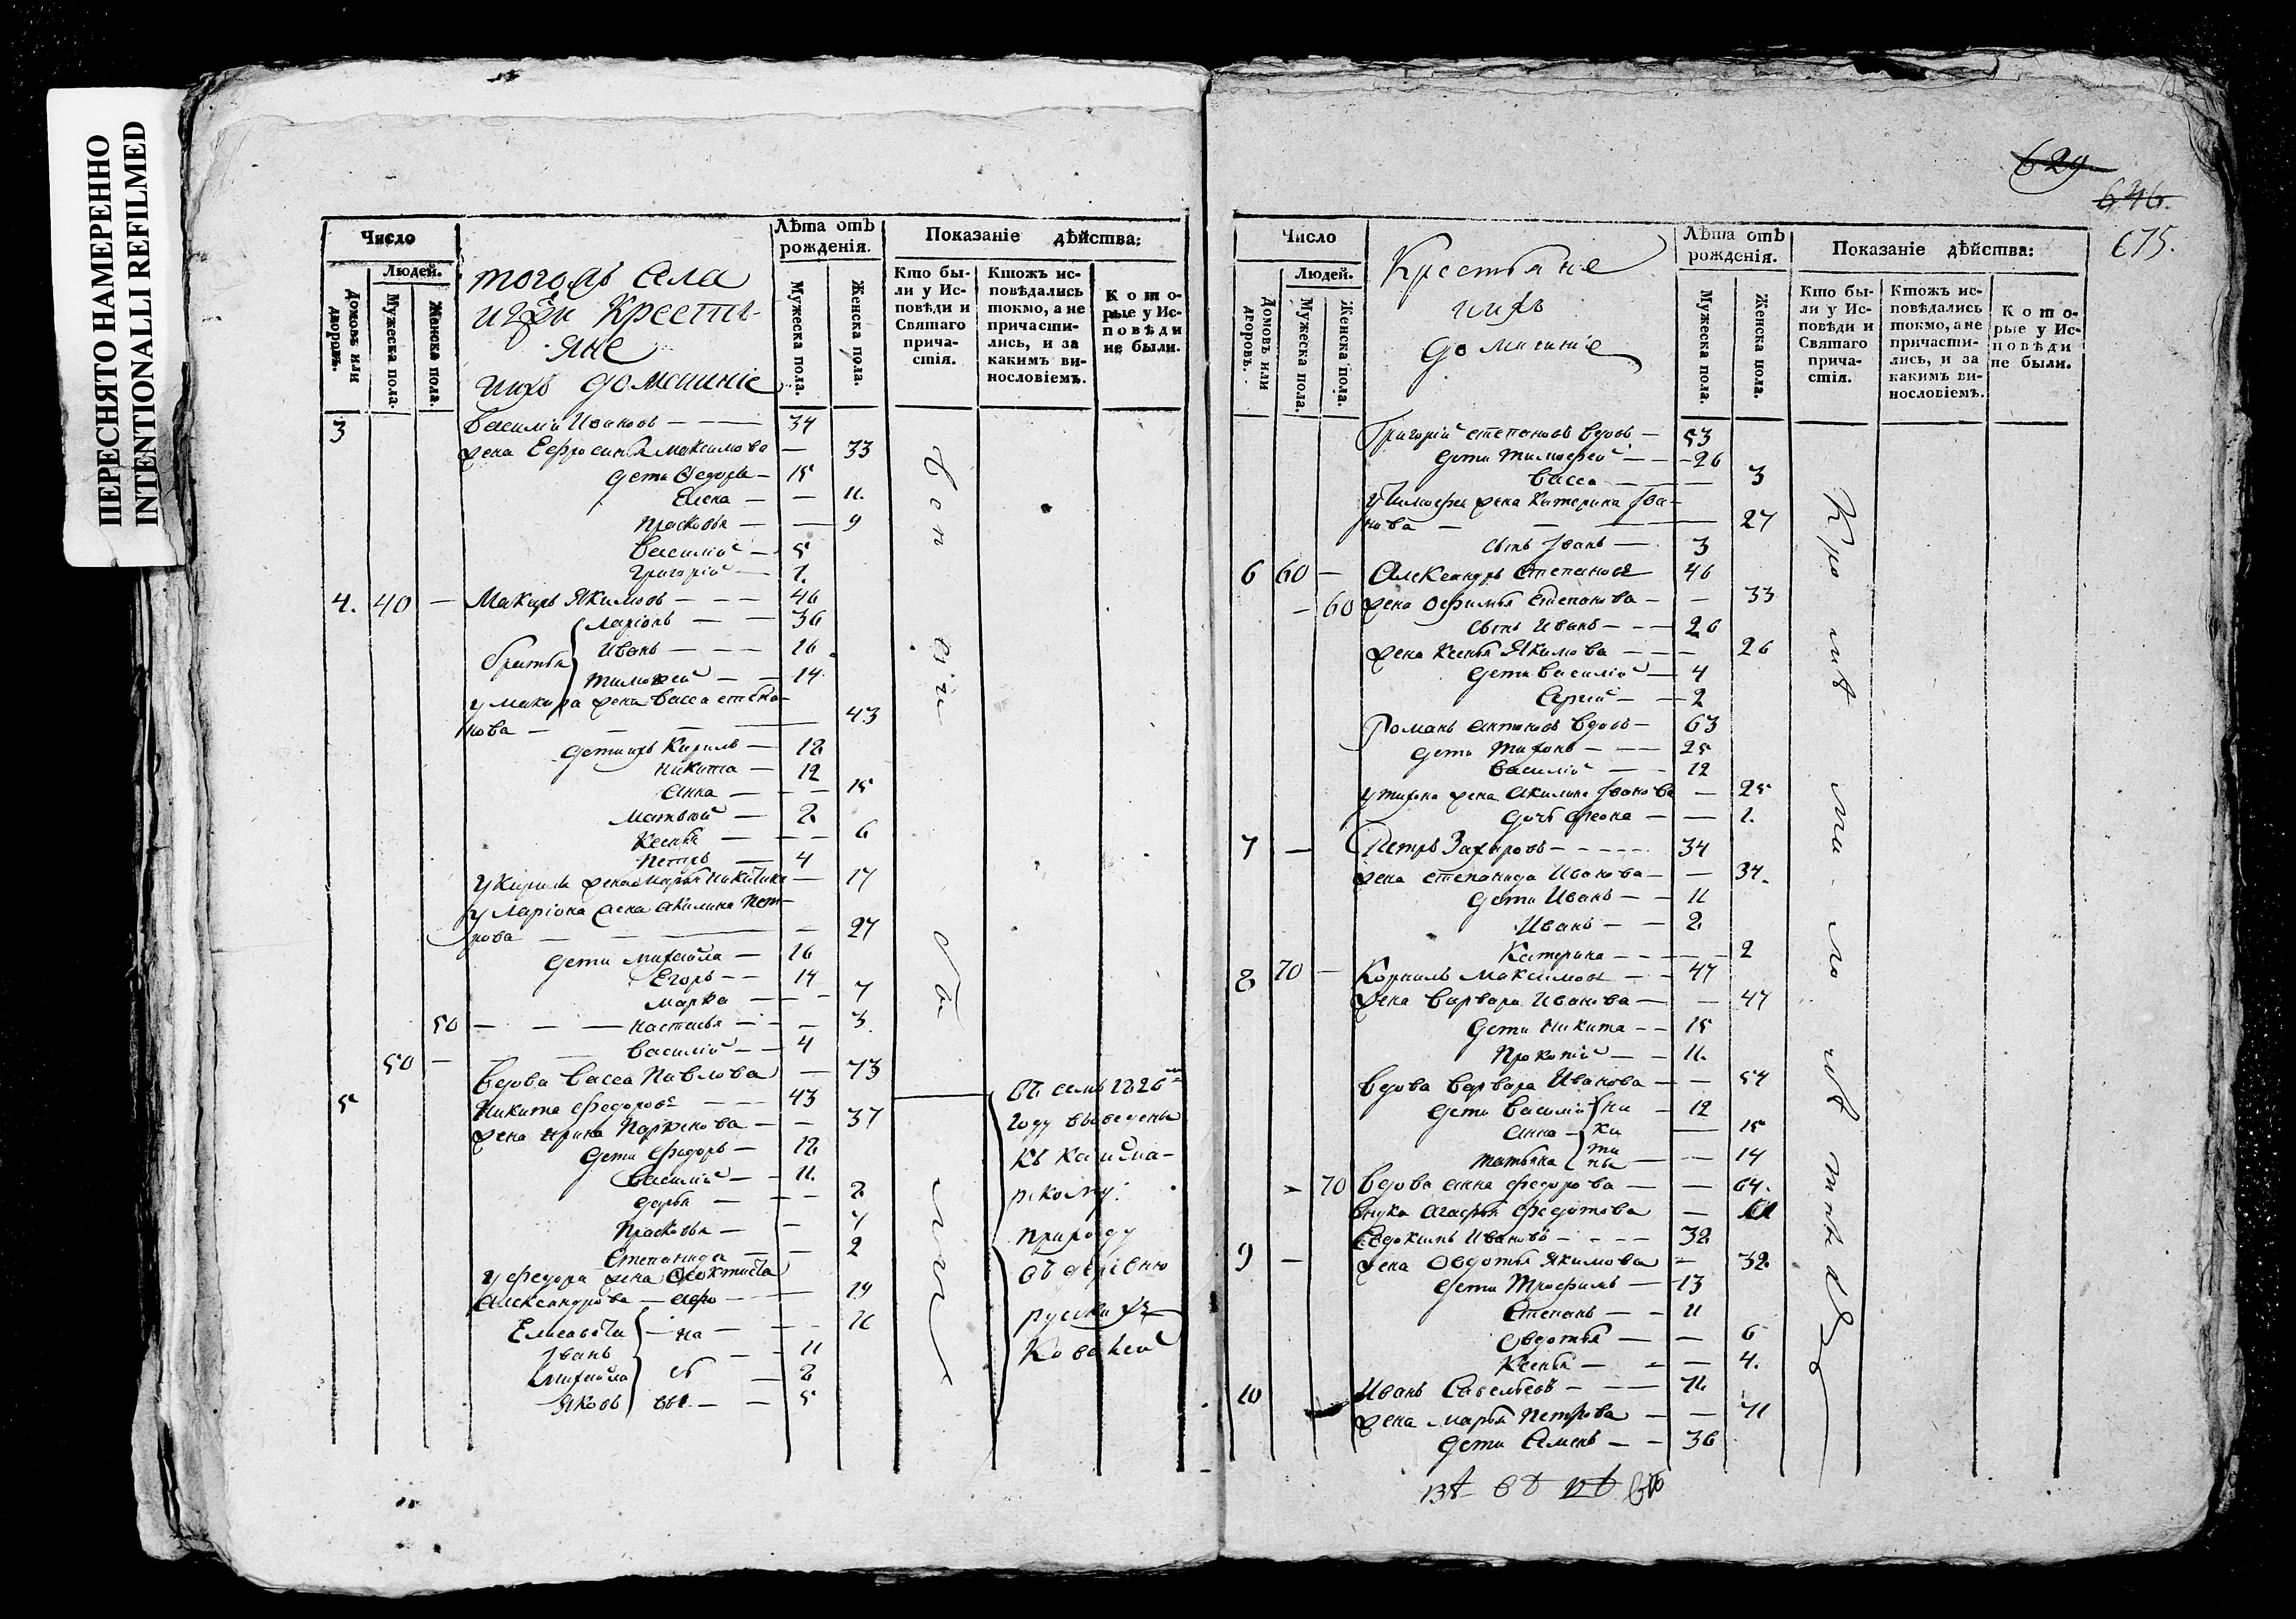 ПЕРЕСНЯТО НАМЕРЕННО
INTENTIONALLI REFILMED
Число
Людей.
Домовъ или дворовъ.
Мужеска пола.
Женска пола.
тогожъ Села
Крестья-
яне
ихъ домашніе
Лѣта отъ рожденія.
Мужеска пола.
Женска пола.
Показаніе дѣйства:
Кто бы-
ли у Ис-
повѣди и
Святаго
прича-
стія.
Ктожъ ис-
повѣдались
токмо, а не
причасти-
лись, и за
какимъ ви-
нословіемъ.
Кото-
рые у Ис-
повѣди
не были.
3 Василій Ивановъ — 34
жена Ефросинья Максимова — 33
дети Федоръ — 15
Елена — 11
Прасковья — 9
Василій — 5
Григорій — 1
4. 40 — Макаръ Якимовъ — 46
братья
Ларіонъ — 36
Иванъ — 16
Тимофей — 14
у Макара жена Васса степа-
нова — 43
дети ихъ Кирилъ — 12
Никита — 12
Анна — 15
Матвей — 2
Ксенья — 6
Петръ — 4
у Кирила жена Марья Никитина — 17
у Ларіона жена Акилина Пет-
рова — 27
дети Михайла — 16
Егоръ — 14
Марфа — 7
50 — Настасья — 3
Василій — 4
50 — Вдова Васса Павлова — 73
5 Никита Федоровъ — 43
жена Ирина Парфенова — 37
дети Федоръ — 12
Василій — 11
Дарья — 2
Прасковья — 7
Степанида — 2
у Федора жена Феоктиста
Александрова — 19
Елисавета — 16
Іванъ — 11
Михайла — 2
Яковъ — 5
въ семъ 1826мъ
году выведены
къ
природу
въ деревню
русских
629
646.
675.
Число
Людей.
Домовъ или дворовъ.
Мужеска пола.
Женска пола.
Крестьяне
ихъ
домашніе
Лѣта отъ рожденія.
Мужеска пола.
Женска пола.
Показаніе дѣйства:
Кто бы-
ли у Ис-
повѣди и
Святаго
прича-
стія.
Ктожъ ис-
повѣдались
токмо, а не
причасти-
лись, и за
какимъ ви-
нословіемъ.
Кото-
рые у Ис-
повѣди
не были.
Григорій степановъ вдовъ — 53
дети Тимофей — 26
Васса — 3
у Тимофея жена Катерина Ива-
нова — 27
сынъ Іванъ — 3
6 60 — Александръ Степановъ 46
— 60 жена Офимья Степанова — 33
сынъ Иванъ — 26
жена Ксенья Якимова — 26
дети Василій — 4
Сергій — 2
Романъ Антоновъ вдовъ — 63
дети Тихонъ — 25
Василій — 12
у Тихона жена Акилина Іванова — 25
дочь Феона — 1.
7 — Петръ Захаровъ — 34
жена степанида Иванова — 34.
дети Иванъ — 11
Иванъ — 2
Катерина — 2
8 70 — Корнилъ Максимовъ — 47
жена Варвара Иванова — 47
дети Никита — 15
Прокопій — 11.
Вдова Варвара Иванова — 57
дети Василій — 12
Анна — 15
Татьяна — 14
Ни
ки
ти
ны
— 70 Вдова Анна Федорова — 64.
внука Агафья Федотова —
Евдокимъ Ивановъ — 32
9 — жена Овдотья Якимова — 32
дети Трофимъ — 13
Степанъ — 11
Овдотья — 6
Ксенья — 4.
10 Иванъ Савельевъ — 71
жена Марья Петрова — 71
дети Семенъ — 36